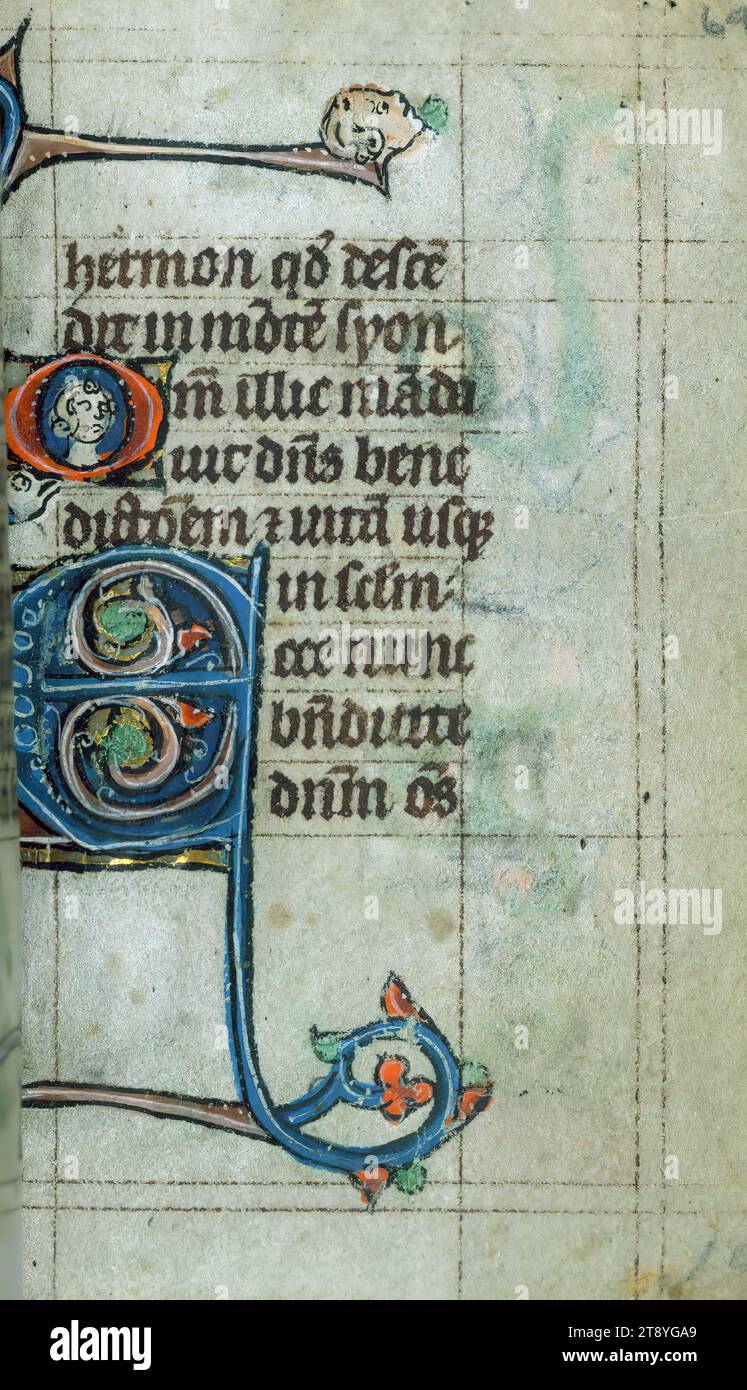 64
hermon qd̄ descē
dit in mōtē syon.
Qm̄ illic mādā
uit dn̄s bene
dictōēm ⁊ uitā usq;
in sclm̄.
Ecce nunc
bn̄dicite
dnm̄ om̄s
alamy
alamy
alamy
alamy
Image ID: 2T8YGA9
www.alamy.com